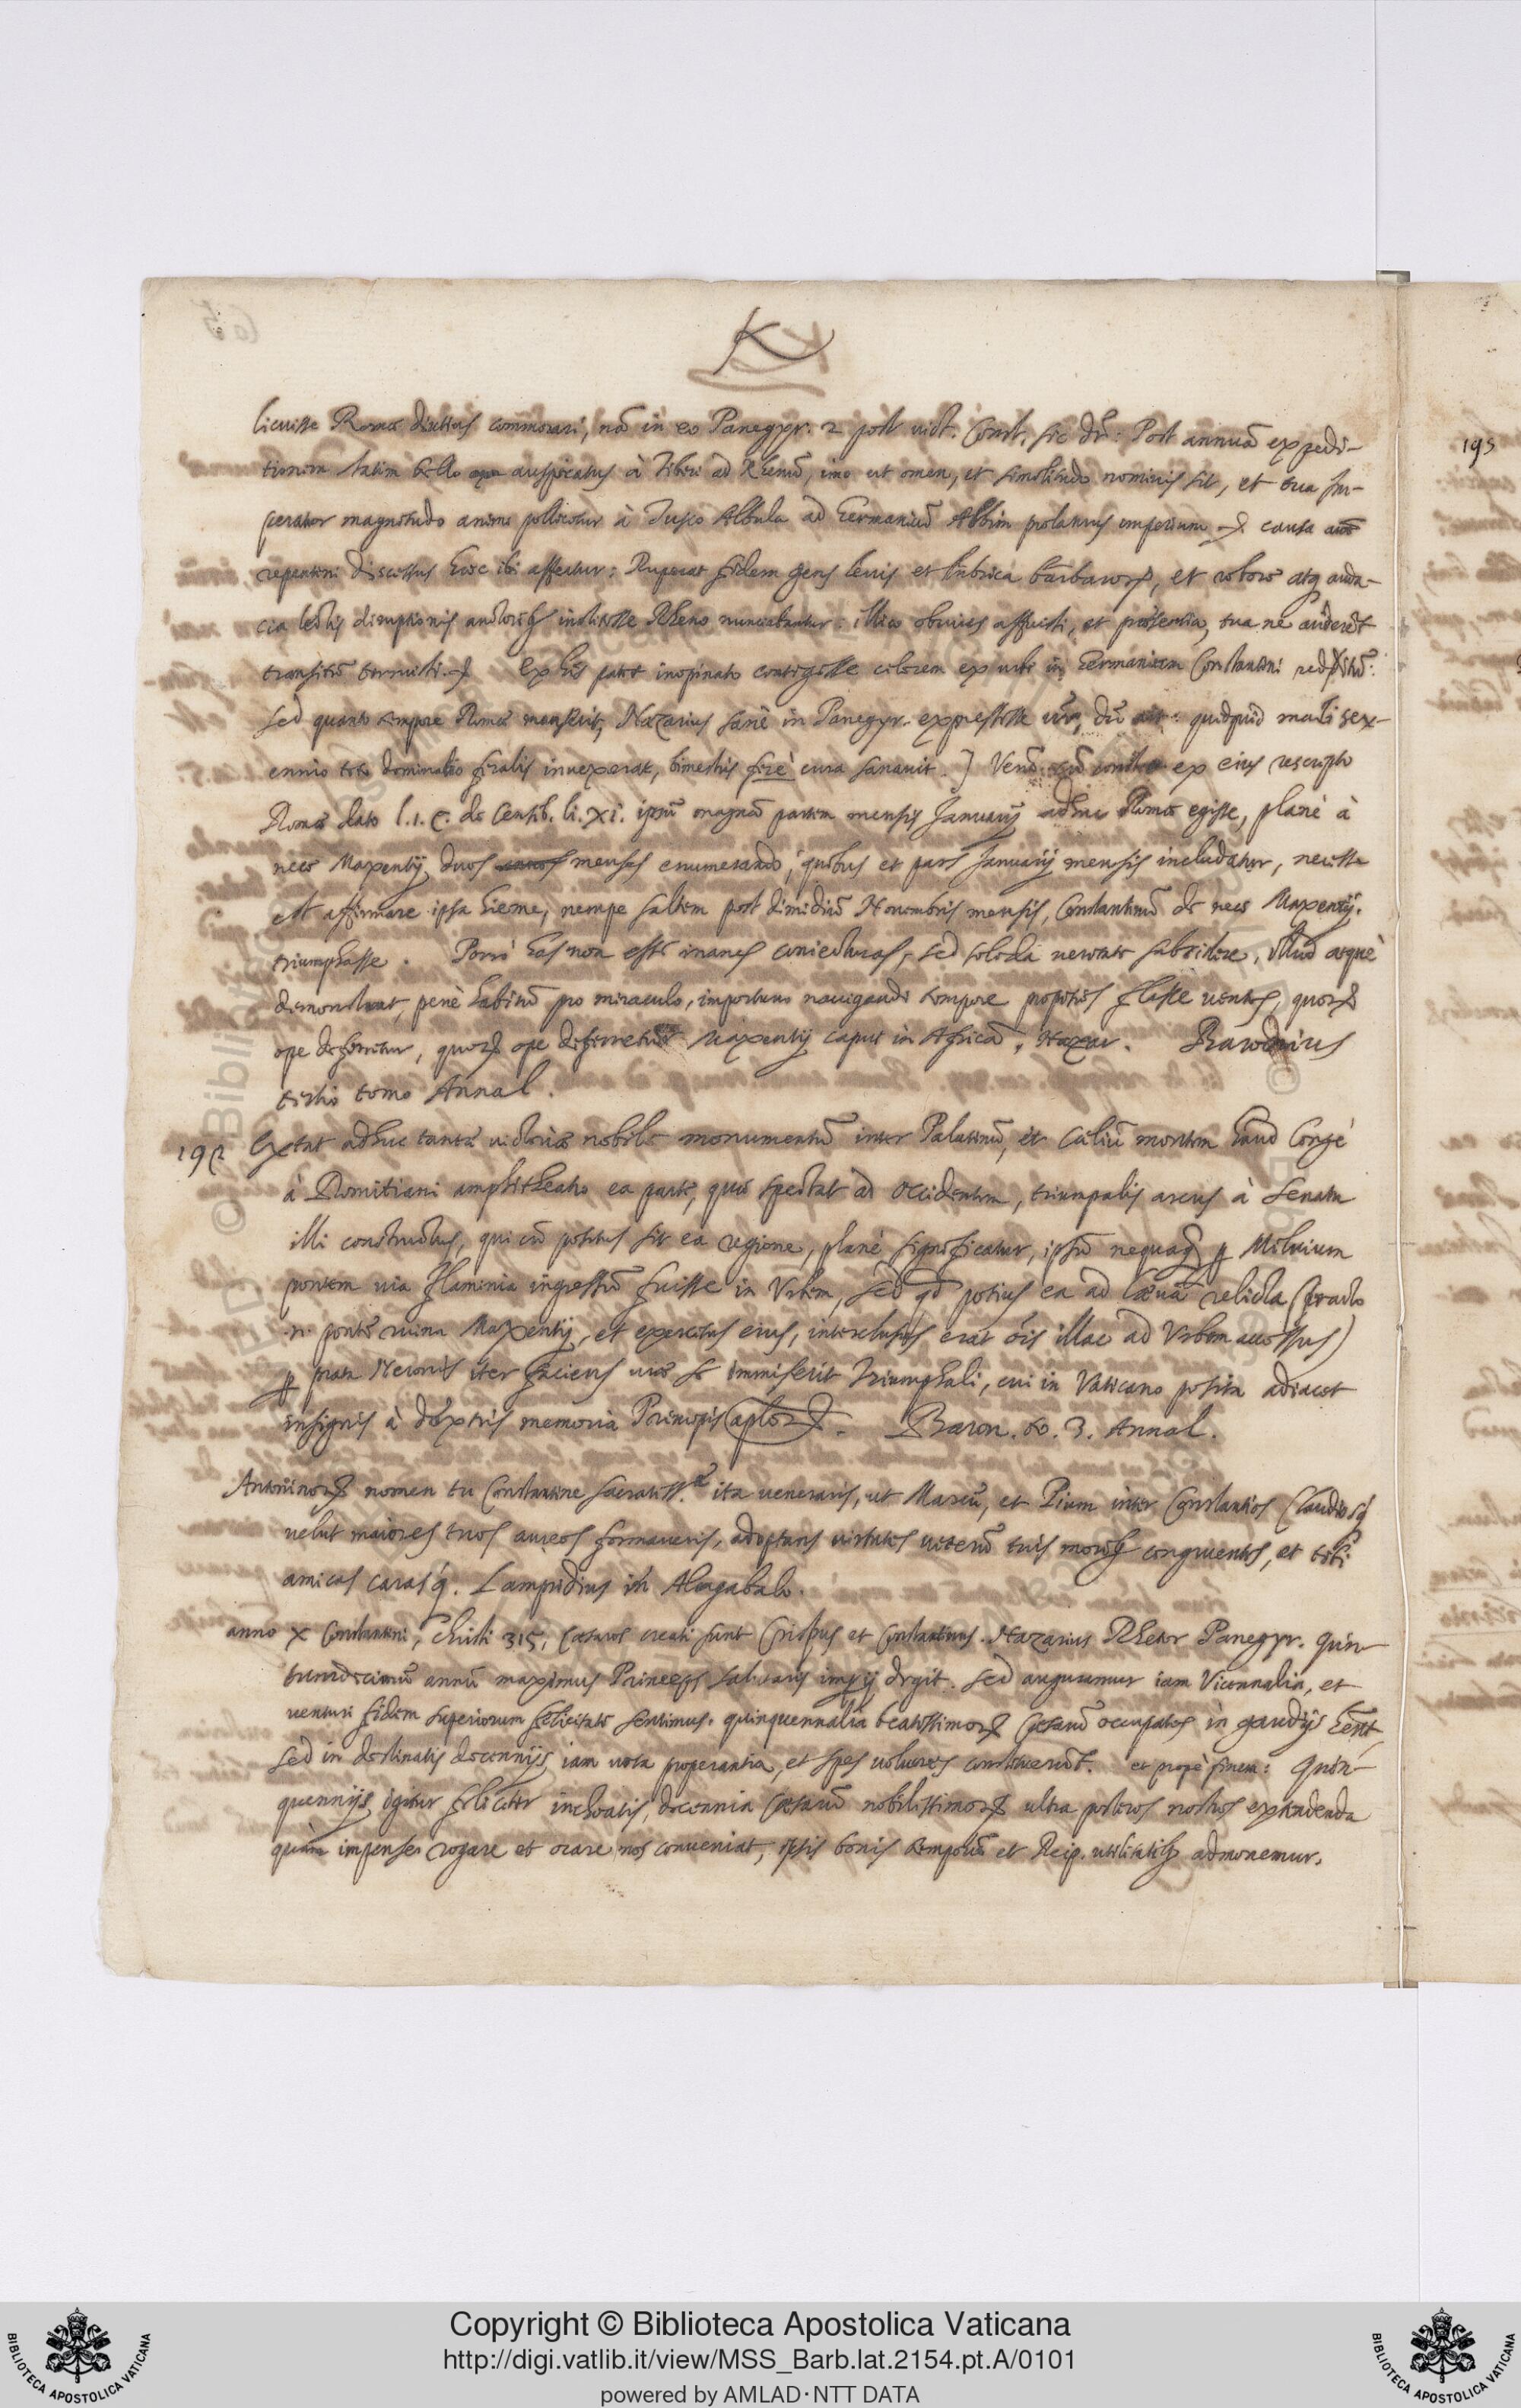 K
licuisse Romæ diutius commorari, nā in eo Panegyr. 2 post vict. Const. sic dr̄: Post annuā expedi-
tionem statim bello auspicatus à Tiberi ad Rhenū, imo ut omen, et similitudo nominis sit, et tua Im-
perator magnitudo animi pollicetur à Tusco Albula ad Germanicū Albim prolaturus imperium causa
repentini discessus hæc ibi affertur: Ruperat fidem gens levis et lubrica barbarorꝫ, et robore atq auda-
cia lectis eruptionis auctoribꝫ institisse Rheno nunciabantur: illico obvius affuisti, et præsentia tua ne auderēt
transitū terruisti. Ex his patet inopinato contigisse celerem ex urbe in Germaniam Constantini reditū:
sed quanto tempore Romæ manserit, Nazarius sanè in Panegyr. expressisse vr̄, dū ait: quidquid mali sex-
ennio toto dominatio feralis invexerat, bimestris ferè cura sanavit.] Verū cū constet ex eius rescripto
Romæ dato l.1.C. de Censib. li. XI. ipsū magnā partem mensis Januarij adhuc Romæ egisse, planè à
nece Maxentij duos menses enumerando, quibus et pars Januarij mensis includatur, necesse
est affirmare ipsa hieme, nempe saltem post dimidiū Novembris mensis, Constantinū de nece Maxentij
triumphasse. Porrò has non esse inanes coniecturas, sed solida veritate subsidere, illud æquè
demonstrat, penè habitū pro miraculo, importuno navigandi tempore propitios flasse ventos, quorꝫ
ope deferretur, quorꝫ ope deferretur Maxentij caput in Africā, Nazar. Baronius
tertio tomo Annal.
192 Extat adhuc tantæ victoriæ nobile monumentū inter Palatinū, et Cæliū montem haud longè
à Domitiani amphitheatro ea parte, quæ spectat ad occidentem, triumpalis arcus à Senatu
illi constructus, qui cū positus sit ea regione, planè significatur, ipsū nequaq̄ ꝑ Milvium
pontem via Flaminia ingressū fuisse in Urbem, sed qd potius ea ad lævā relicta (fracto
n. ponte ruina Maxentij, et exercitus eius, interclusus erat ōis illac ad Urbem accessus)
ꝑ prata Neronis iter faciens viæ se immiserit Triumphali, cui in Vaticano posita adiacet
insignis à dextris memoria Principis aplorꝫ. Baron. to. 3. Annal.
Antoninorꝫ nomen tu Constantine sacratiss.e ita veneraris, ut Marcū, et Pium inter Constantios Claudiosq
velut maiores tuos aureos formaveris, adoptans virtutes veterū tuis moribꝫ congruentes, et tibi
amicas carasq. Lampridius in Alagabalo.
anno X Constantini, Christi 315, Cæsares creati sunt Crispus et Constantinus. Nazarius Rhetor Panegyr. Quin-
tumdecimū annū maximus Princeps salutaris imperij degit. sed auguramur iam Vicennalia, et
venturi fidem superiorum felicitate sentimus. quinquennalia beatissimorꝫ Cæsarū occupatos in gaudijs hēnt,
sed in destinatis decennijs iam vota properantia, et spes volucres constiterūt. et propè finem: Quin-
quennijs igitur feliciter inchoatis, decennia Cæsarū nobilissimorꝫ ultra posteros nostros extendenda
quàm impense rogare et orare nos conveniat, ipsis bonis temporū et Reip. utilitatibꝫ admonemur.
193
Copyright © Biblioteca Apostolica Vaticana
http://digi.vatlib.it/view/MSS_Barb.lat.2154.pt.A/0101
powered by AMLAD·NTT DATA
BIBLIOTECA APOSTOLICA VATICANA
BIBLIOTECA APOSTOLICA VATICANA